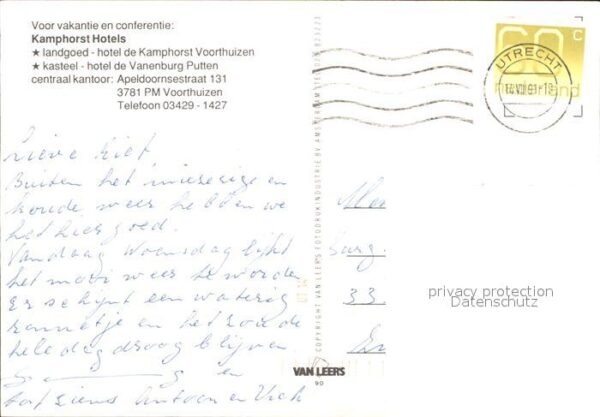 Voor vakantie en conferentie:
Kamphorst Hotels
★ landgoed - hotel de Kamphorst Voorthuizen
★ kasteel - hotel de Vanenburg Putten
centraal kantoor: Apeldoornsestraat 131
3781 PM Voorthuizen
Telefoon 03429 - 1427
60 c
Nederland
UTRECHT
Lieve
Buiten het miezerige en
koude weer hebben we
het hier goed.
Vandaag Woensdag lijkt
het mooi weer te worden
Er schijnt een waterig
zonnetje en het zou de
hele dag droog blijven
en
tot ziens Antoon en
33
COPYRIGHT VAN LEER'S FOTODRUKINDUSTRIE BV AMSTERDAM
VAN LEERS
90
privacy protection
Datenschutz